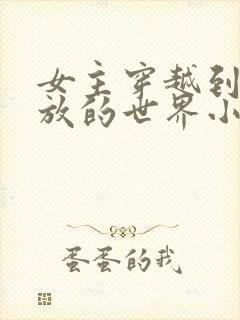 女主穿越到
放的世界小
蛋蛋的我